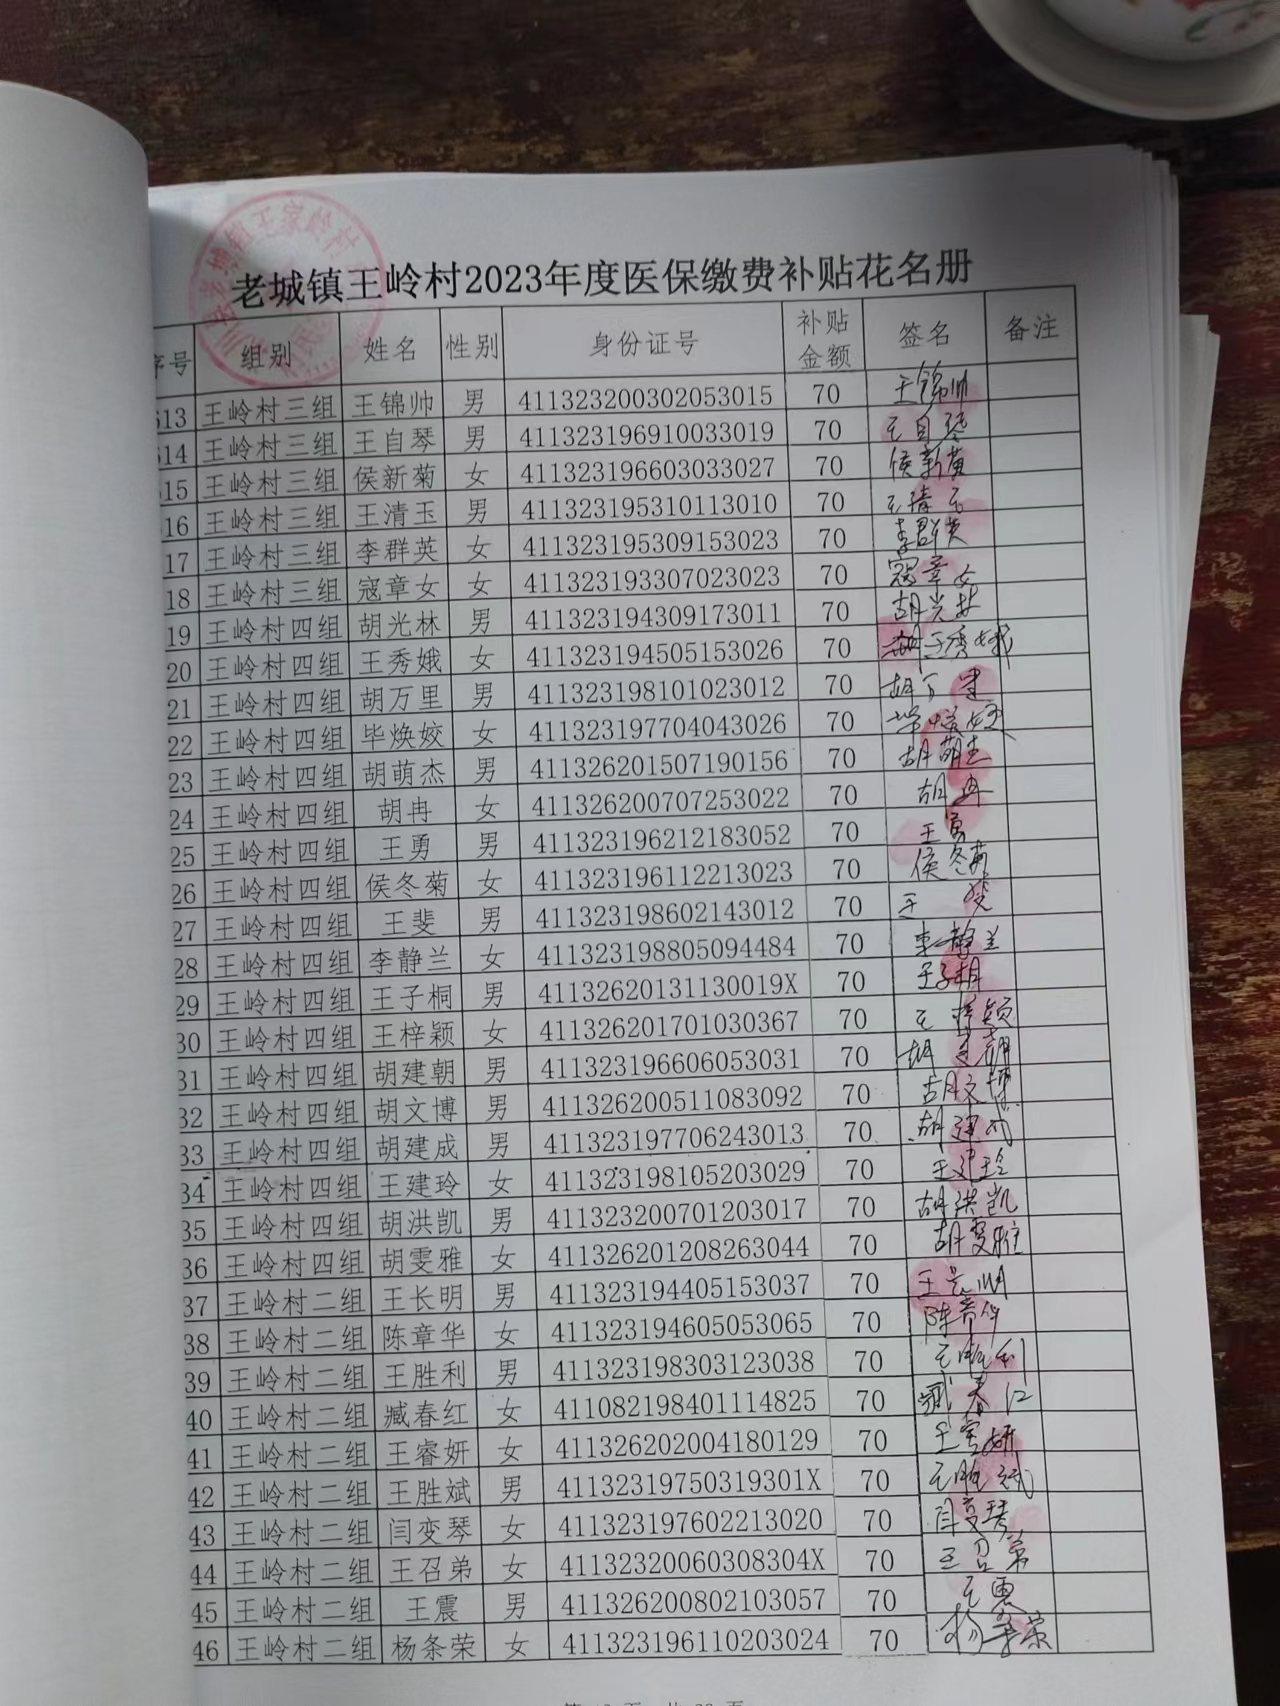 老城镇王岭村2023年度医保缴费补贴花名册
序号 组别 姓名 性别 身份证号 补贴金额 签名 备注
613 王岭村三组 王锦帅 男 411323200302053015 70 王锦帅
614 王岭村三组 王自琴 男 411323196910033019 70 王自琴
615 王岭村三组 侯新菊 女 411323196603033027 70 侯新菊
16 王岭村三组 王清玉 男 411323195310113010 70 王清玉
17 王岭村三组 李群英 女 411323195309153023 70 李群英
18 王岭村三组 寇章女 女 411323193307023023 70 寇章女
19 王岭村四组 胡光林 男 411323194309173011 70 胡光林
20 王岭村四组 王秀娥 女 411323194505153026 70 王秀娥
21 王岭村四组 胡万里 男 411323198101023012 70 胡万里
22 王岭村四组 毕焕姣 女 411323197704043026 70 毕焕姣
23 王岭村四组 胡萌杰 男 411326201507190156 70 胡萌杰
24 王岭村四组 胡冉 女 411326200707253022 70 胡冉
25 王岭村四组 王勇 男 411323196212183052 70 王勇
26 王岭村四组 侯冬菊 女 411323196112213023 70 侯冬菊
27 王岭村四组 王斐 男 411323198602143012 70 王斐
28 王岭村四组 李静兰 女 411323198805094484 70 李静兰
29 王岭村四组 王子桐 男 41132620131130019X 70 王子桐
30 王岭村四组 王梓颖 女 411326201701030367 70 王梓颖
31 王岭村四组 胡建朝 男 411323196606053031 70 胡建朝
32 王岭村四组 胡文博 男 411326200511083092 70 胡文博
33 王岭村四组 胡建成 男 411323197706243013 70 胡建成
34 王岭村四组 王建玲 女 411323198105203029 70 王建玲
35 王岭村四组 胡洪凯 男 411323200701203017 70 胡洪凯
36 王岭村四组 胡雯雅 女 411326201208263044 70 胡雯雅
37 王岭村二组 王长明 男 411323194405153037 70 王长明
38 王岭村二组 陈章华 女 411323194605053065 70 陈章华
39 王岭村二组 王胜利 男 411323198303123038 70 王胜利
40 王岭村二组 臧春红 女 411082198401114825 70 臧春红
41 王岭村二组 王睿妍 女 411326202004180129 70 王睿妍
42 王岭村二组 王胜斌 男 41132319750319301X 70 王胜斌
43 王岭村二组 闫变琴 女 411323197602213020 70 闫变琴
44 王岭村二组 王召弟 女 41132320060308304X 70 王召弟
45 王岭村二组 王震 男 411326200802103057 70 王震
46 王岭村二组 杨条荣 女 411323196110203024 70 杨条荣